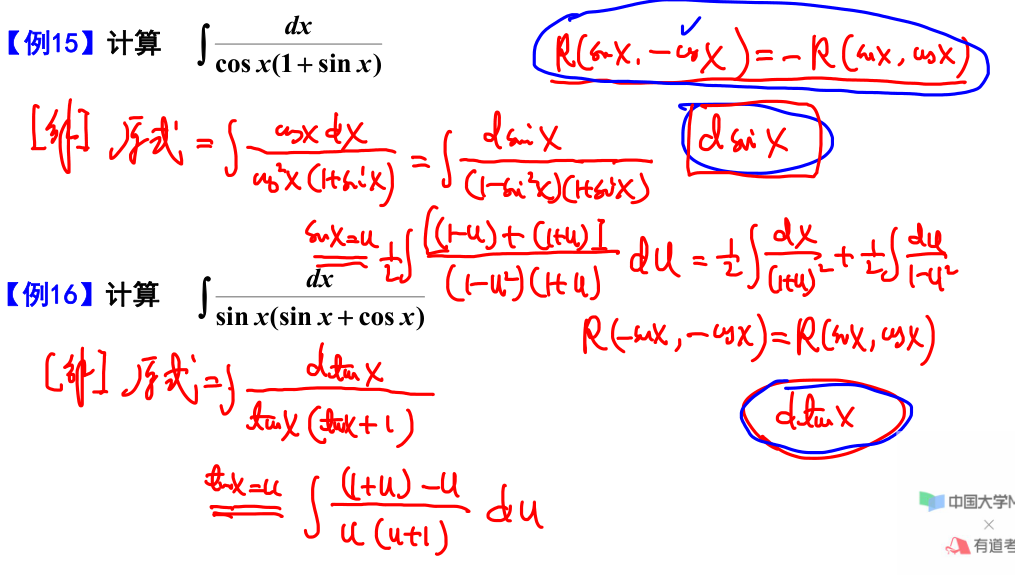 【例15】计算 ∫ dx / cos x(1 + sin x)
R(sin x, -cos x) = -R(sin x, cos x)
[解] 原式 = ∫ cos x dx / cos²x(1+sin x) = ∫ d sin x / (1-sin²x)(1+sin x)
d sin x
sin x = u 1/2 ∫ [(1-u)+(1+u)] / (1-u²)(1+u) du = 1/2 ∫ dx / (1+u)² + 1/2 ∫ du / 1-u²
【例16】计算 ∫ dx / sin x(sin x + cos x)
R(-sin x, -cos x) = R(sin x, cos x)
[解] 原式 = ∫ d tan x / tan x (tan x + 1)
d tan x
tan x = u ∫ (1+u) - u / u(u+1) du
中国大学M
×
有道考